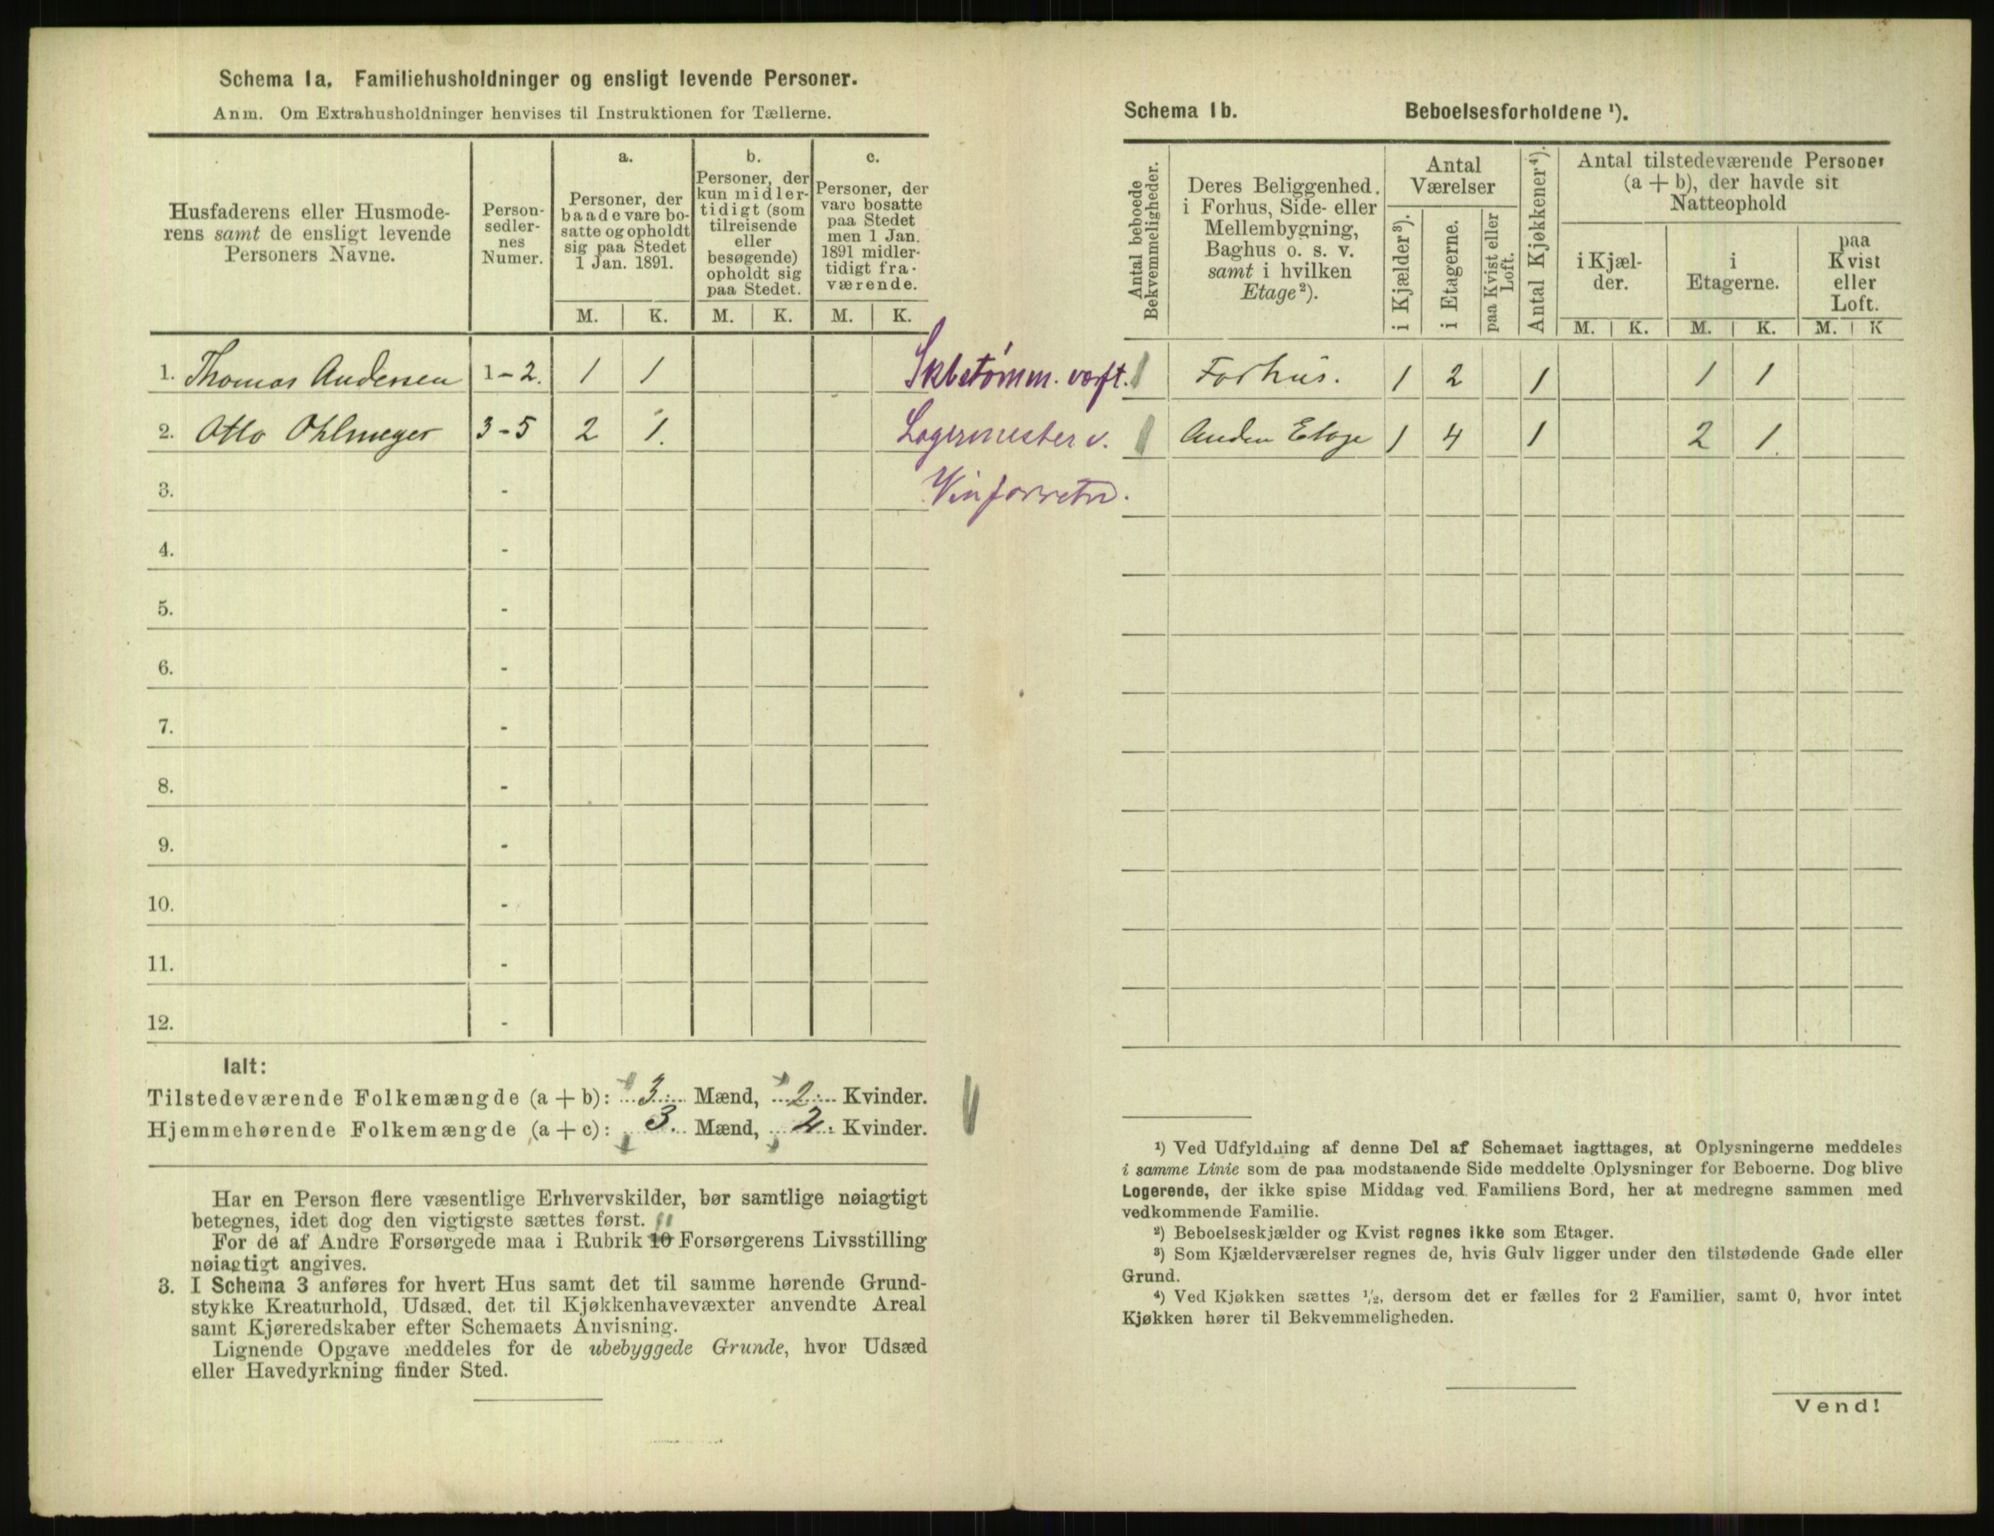 Schema 1a. Familiehusholdninger og ensligt levende Personer.
Anm. Om Extrahusholdninger henvises til Instruktionen for Tællerne.
Husfaderens eller Husmode-
rens samt de ensligt levende
Personers Navne.
Person-
sedler-
nes
Numer.
a.
Personer, der
baade vare bo-
satte og opholdt
sig paa Stedet
1 Jan. 1891.
b.
Personer, der
kun midler-
tidigt (som
tilreisende
eller
besøgende)
opholdt sig
paa Stedet.
c.
Personer, der
vare bosatte
paa Stedet
men 1 Jan.
1891 midler-
tidigt fra-
værende.
M. K. M. K. M. K.
1. Thomas Andersen 1-2. 1 1 Skbstømm. værft.
2. Otto Ohlmeyer 3-5 2 1. Lagermester v.
3. - Vinforretn.
4. -
5. -
6. -
7. -
8. -
9. -
10. -
11. -
12. -
Ialt:
Tilstedeværende Folkemængde (a + b): 3 Mænd, 2 Kvinder.
Hjemmehørende Folkemængde (a + c): 3 Mænd, 2 Kvinder.
Har en Person flere væsentlige Erhvervskilder, bør samtlige nøiagtigt
betegnes, idet dog den vigtigste sættes først. 11
For de af Andre Forsørgede maa i Rubrik 10 Forsørgerens Livsstilling
nøiagtigt angives.
3. I Schema 3 anføres for hvert Hus samt det til samme hørende Grund-
stykke Kreaturhold, Udsæd, det til Kjøkkenhavevæxter anvendte Areal
samt Kjøreredskaber efter Schemaets Anvisning.
Lignende Opgave meddeles for de ubebyggede Grunde, hvor Udsæd
eller Havedyrkning finder Sted.
Schema 1b. Beboelsesforholdene ¹).
Antal beboede
Bekvemmeligheder.
Deres Beliggenhed.
i Forhus, Side- eller
Mellembygning,
Baghus o. s. v.
samt i hvilken
Etage²).
Antal
Værelser
i Kjælder³).
i Etagerne.
paa Kvist eller
Loft.
Antal Kjøkkener⁴).
Antal tilstedeværende Personer
(a + b), der havde sit
Natteophold
i Kjæl-
der.
i
Etagerne.
paa
Kvist
eller
Loft.
M. K. M. K. M. K
1 Forhus. 1 2 1 1 1
1 Anden Etage 1 4 1 2 1.
¹) Ved Udfyldning af denne Del af Schemaet iagttages, at Oplysningerne meddeles
i samme Linie som de paa modstaaende Side meddelte Oplysninger for Beboerne. Dog blive
Logerende, der ikke spise Middag ved Familiens Bord, her at medregne sammen med
vedkommende Familie.
²) Beboelseskjælder og Kvist regnes ikke som Etager.
³) Som Kjælderværelser regnes de, hvis Gulv ligger under den tilstødende Gade eller
Grund.
⁴) Ved Kjøkken sættes ½, dersom det er fælles for 2 Familier, samt 0, hvor intet
Kjøkken hører til Bekvemmeligheden.
Vend!